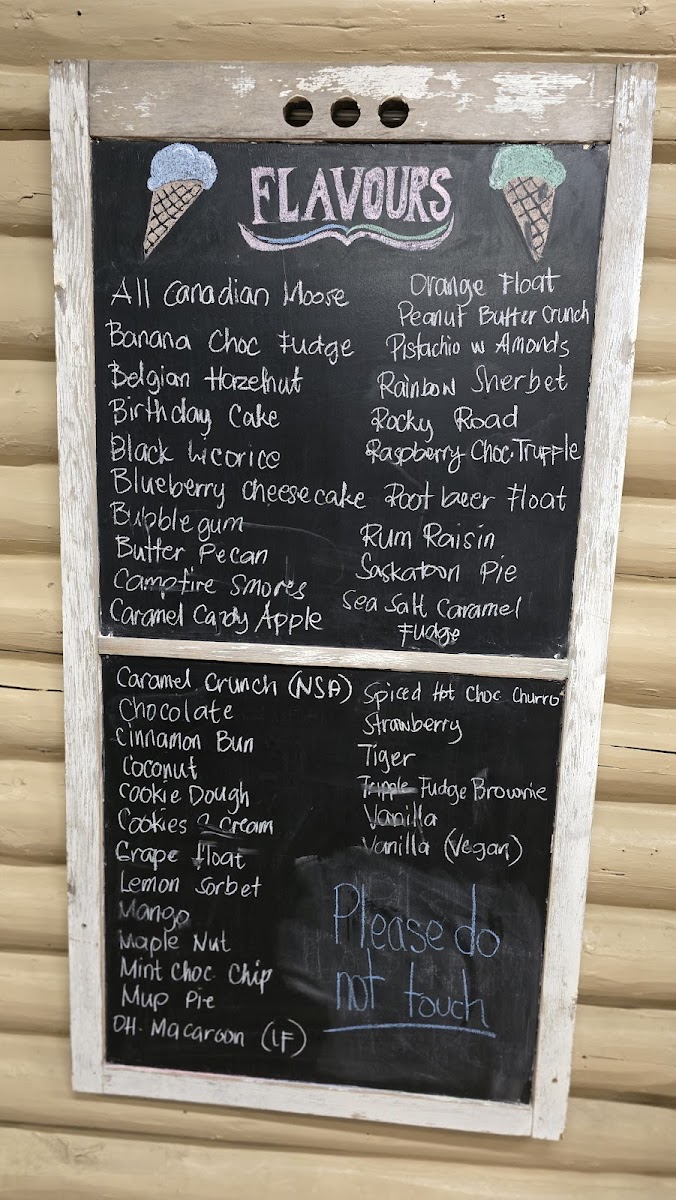 FLAVOURS
All Canadian Moose
Banana Choc Fudge
Belgian Hazelnut
Birthday Cake
Black Licorice
Blueberry Cheesecake
Bubblegum
Butter Pecan
Campfire Smores
Caramel Candy Apple
Orange Float
Peanut Butter Crunch
Pistachio w Almonds
Rainbow Sherbet
Rocky Road
Raspberry Choc. Truffle
Root beer Float
Rum Raisin
Saskatoon Pie
Sea Salt Caramel
Fudge
Caramel Crunch (NSA)
Chocolate
Cinnamon Bun
Coconut
Cookie Dough
Cookies & Cream
Grape Float
Lemon Sorbet
Mango
Maple Nut
Mint Choc Chip
Mup Pie
OH. Macaroon (LF)
Spiced Hot Choc Churro
Strawberry
Tiger
Tripple Fudge Brownie
Vanilla
Vanilla (Vegan)
Please do
not touch